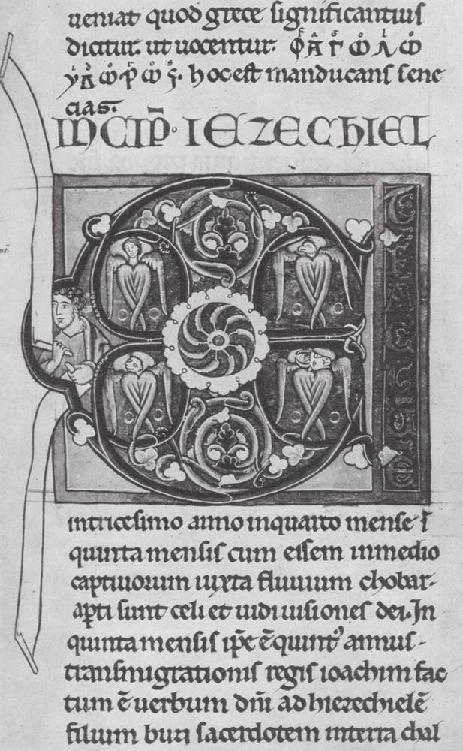 ueniat quod grece significantius
dicitur. ut uocentur.
hoc est manducans sene
cias.
INCIP̄· IEZECHIEL
E
in tricesimo anno in quarto mense ī
quinta mensis cum essem in medio
captiuorum iuxta fluuium chobar·
apti sunt celi et uidi uisiones dei. In
quinta mensis ip̄e ē quint᾽ annus·
transmigrationis regis ioachim fac
tum ē uerbum dn̄i ad hiezechielē
filium buzi sacerdotem in terra chal